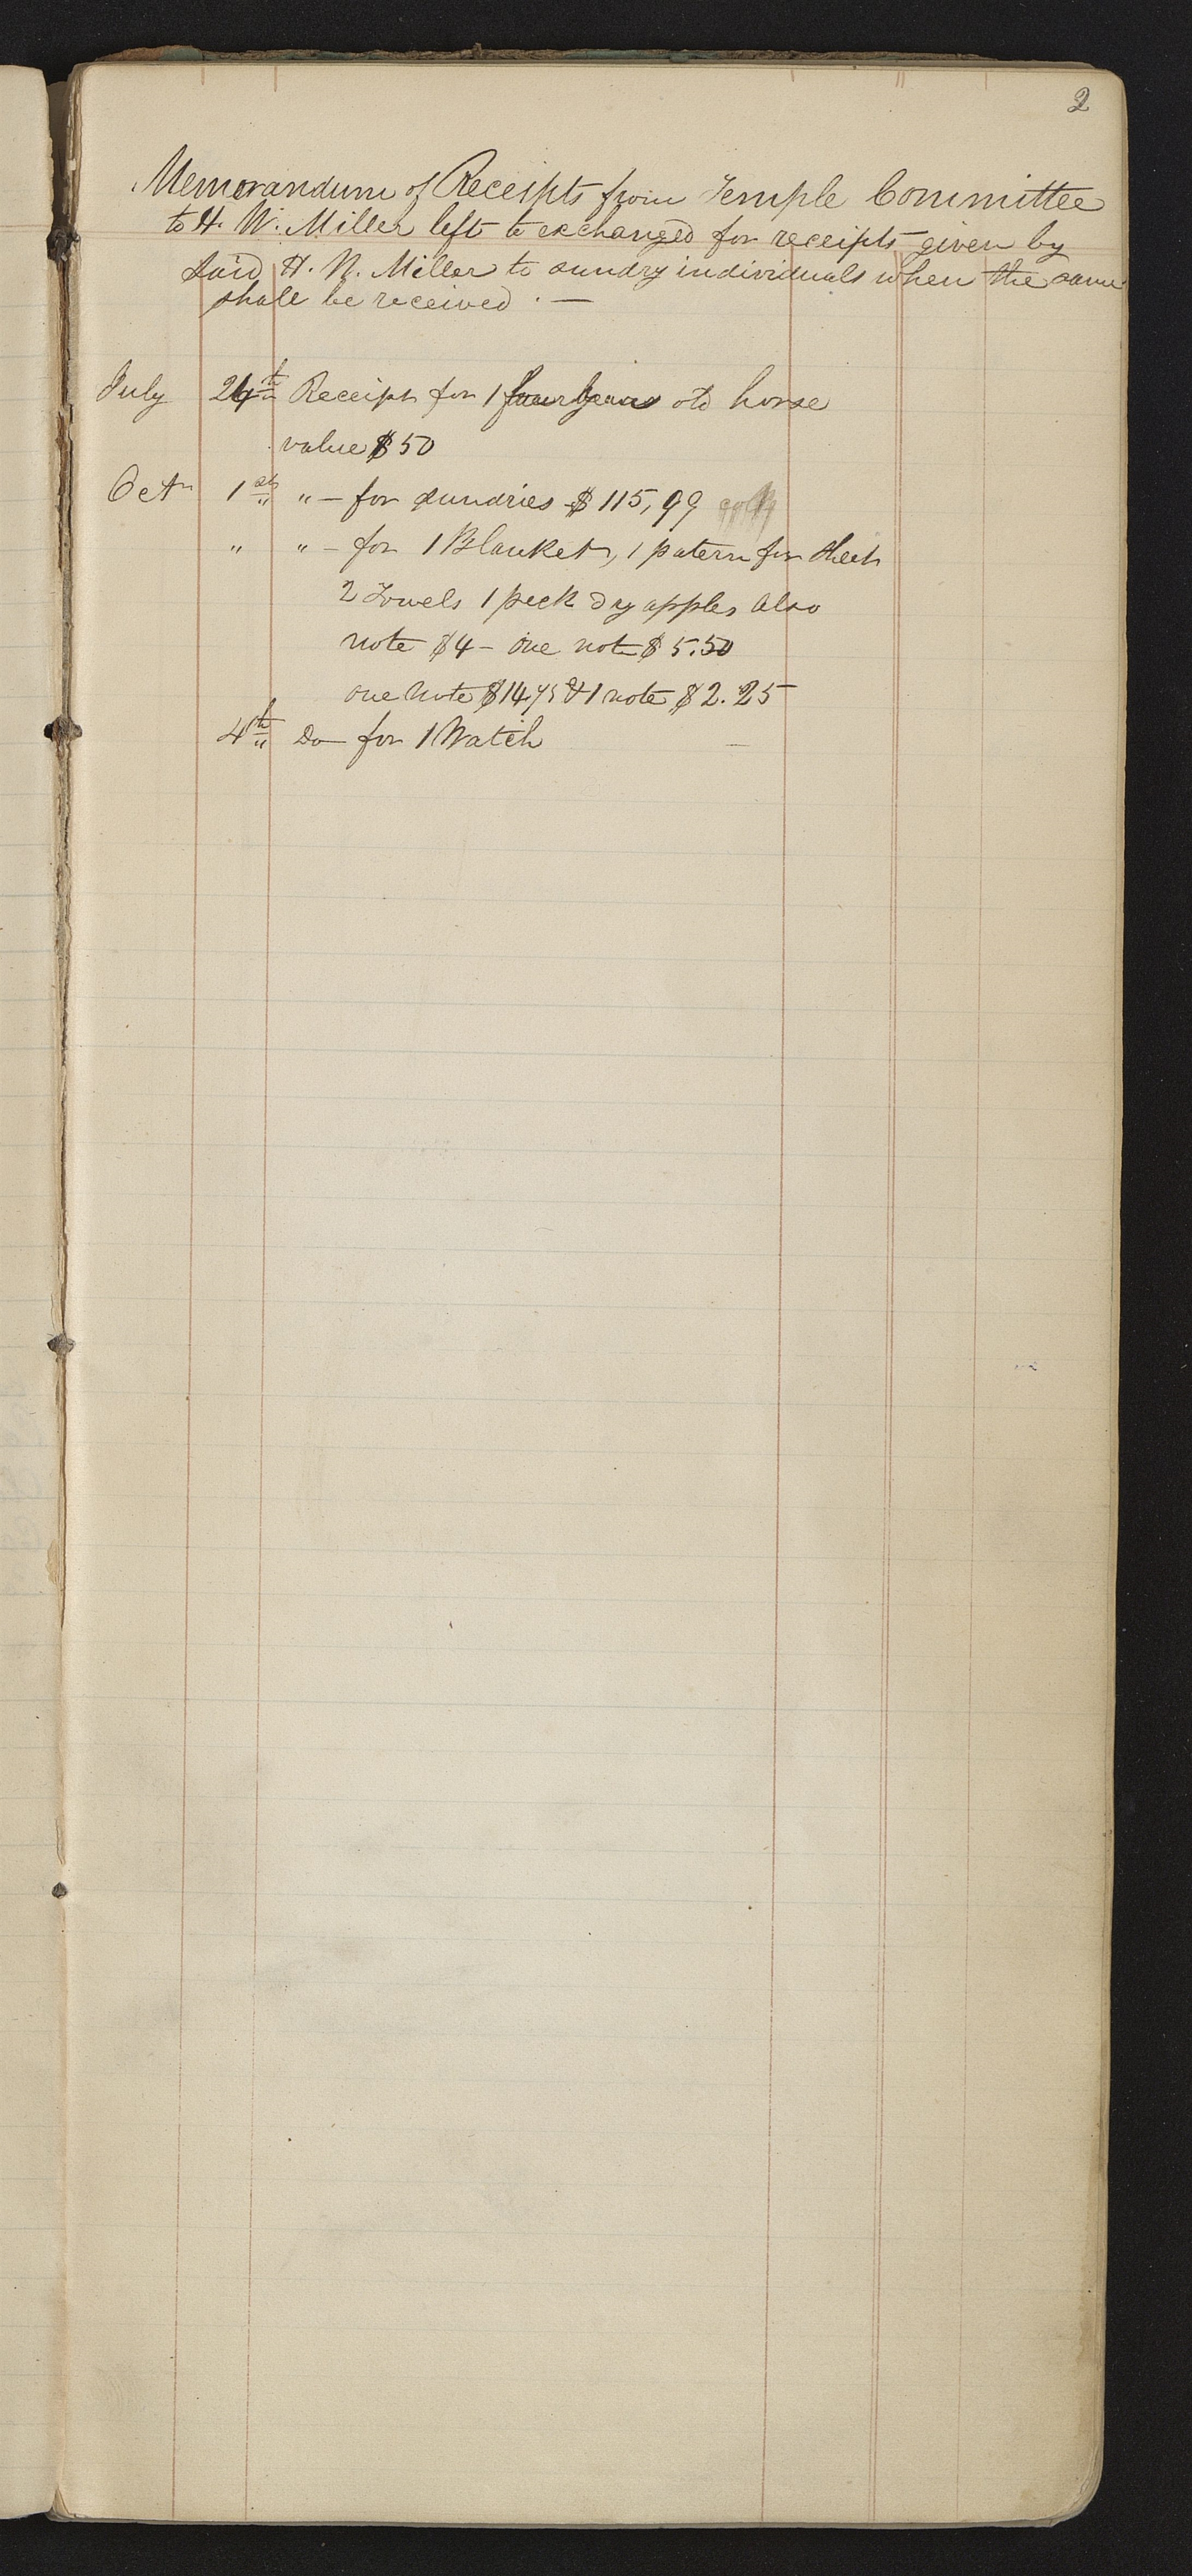 2
Memorandum of Receipts from Temple Committee
to H. W. Miller left to exchanged for receipts given by
said H. W. Miller to sundry individuals when the same
shall be received. —
July 24th Receipt for 1 four years old horse
value $50
Oct 1st " – for sundries $115,99
" " – for 1 Blanket, 1 patern for sheet
2 Towels 1 peck dry apples also
note $4 – one note $5.50
one note $14,75 & 1 note $2.25
4th Do for 1 Watch